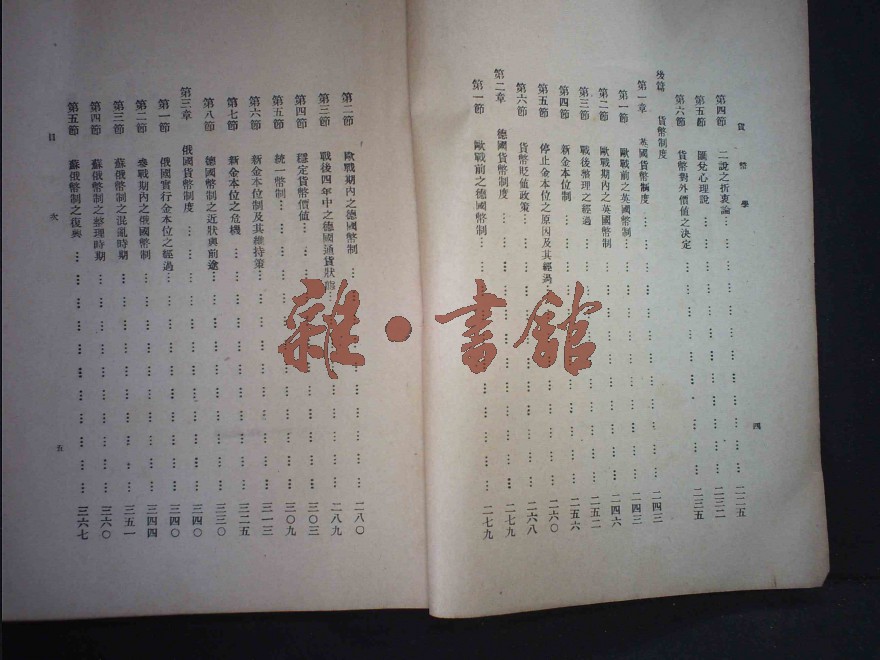 貨幣學
四
第四節 二說之折衷論 二二五
第五節 匯兌心理說 二三二
第六節 貨幣對外價值之決定 二三五
後篇 貨幣制度
第一章 英國貨幣制度 二四三
第一節 歐戰前之英國幣制 二四三
第二節 歐戰期內之英國幣制 二四六
第三節 戰後整理之經過 二五二
第四節 新金本位制 二五六
第五節 停止金本位之原因及其經過 二六〇
第六節 貨幣貶值政策 二六八
第二章 德國貨幣制度 二七九
第一節 歐戰前之德國幣制 二七九
第二節 歐戰期內之德國幣制 二八〇
第三節 戰後四年中之德國通貨狀態 二八九
第四節 穩定貨幣價值 三〇三
第五節 統一幣制 三〇九
第六節 新金本位制及其維持策 三一三
第七節 新金本位之危機 三二五
第八節 德國幣制之近狀與前途 三三〇
第三章 俄國貨幣制度 三四〇
第一節 俄國實行金本位之經過 三四〇
第二節 參戰期內之俄國幣制 三四四
第三節 蘇俄幣制之混亂時期 三五一
第四節 蘇俄幣制之整理時期 三六〇
第五節 蘇俄幣制之復興 三六七
目次
五
雜·書館